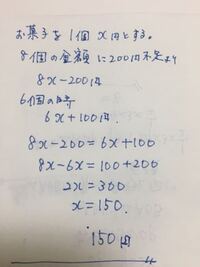 お菓子を1個 x円とする。
8個の金額に200円不足より
8x-200円
6個の時
6x+100円.
8x-200=6x+100
8x-6x=100+200
2x=300
x=150.
150円